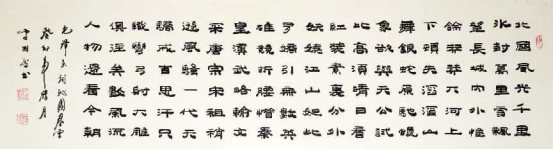 北國風光千里
冰封萬里雪飄
望長城內外惟
餘莽莽大河上
下頓失滔滔山
舞銀蛇原馳蠟
象欲與天公試
比高須晴日看
紅裝素裹分外
妖嬈江山如此
多嬌引無數英
雄競折腰惜秦
皇漢武略輸文
采唐宗宋祖稍
遜風騷一代天
驕成吉思汗只
識彎弓射大雕
俱往矣數風流
人物還看今朝
毛澤東詞沁園春雪
癸卯年月
書